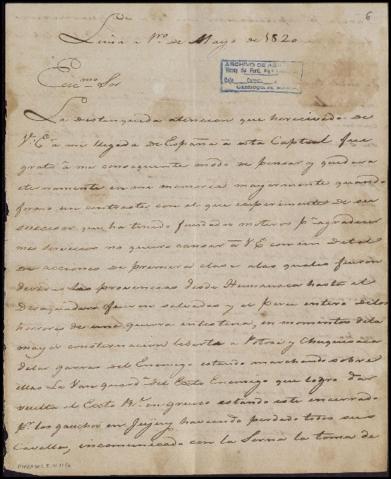 6
Lima 1º de Mayo de 1820
Exc.mo Sor
La distinguida atencion que he recivido de
V. E. a mi llegada de España a esta Capital fue
grata a mi consequente modo de pensar y quedara
eternamente en mi memoria mayormente quando
forma un contraste con el que experimente de su
sucesor que ha tenido fundados motivos p.a agradecer
mis servicios no quiero cansar a V E con un detal
de acciones de primera clase a las quales fueron
las provincias desde Humauaca hasta el
Desaguadero fueron salvadas y el peru entero de los
horrores de una guerra intestina, en momentos de la
mayor consternacion liberté a Potosi y Chuquisaca
de las garras del Enemigo estando marchando sobre
ellas La Vanguard.a del Exto Enemigo que logro dar
vuelta el Exto Rl. en grueso estando este encerrado
p.r los gauchos en Jujuy haviendo perdido todos sus
Cavallos, incomunicado con la Serna la toma de